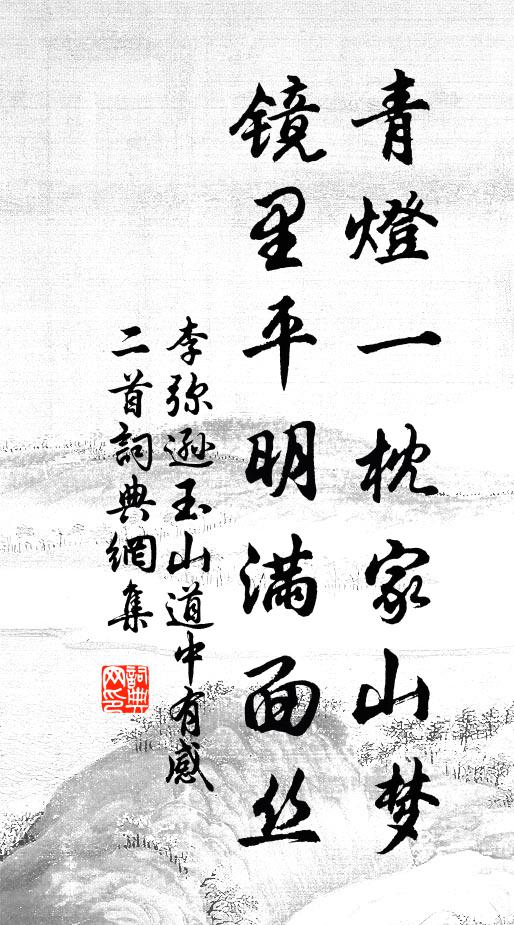 青燈一枕家山梦
镜里平明满面丝
李弥遜玉山道中有感
二首詞典網集
詞典网印